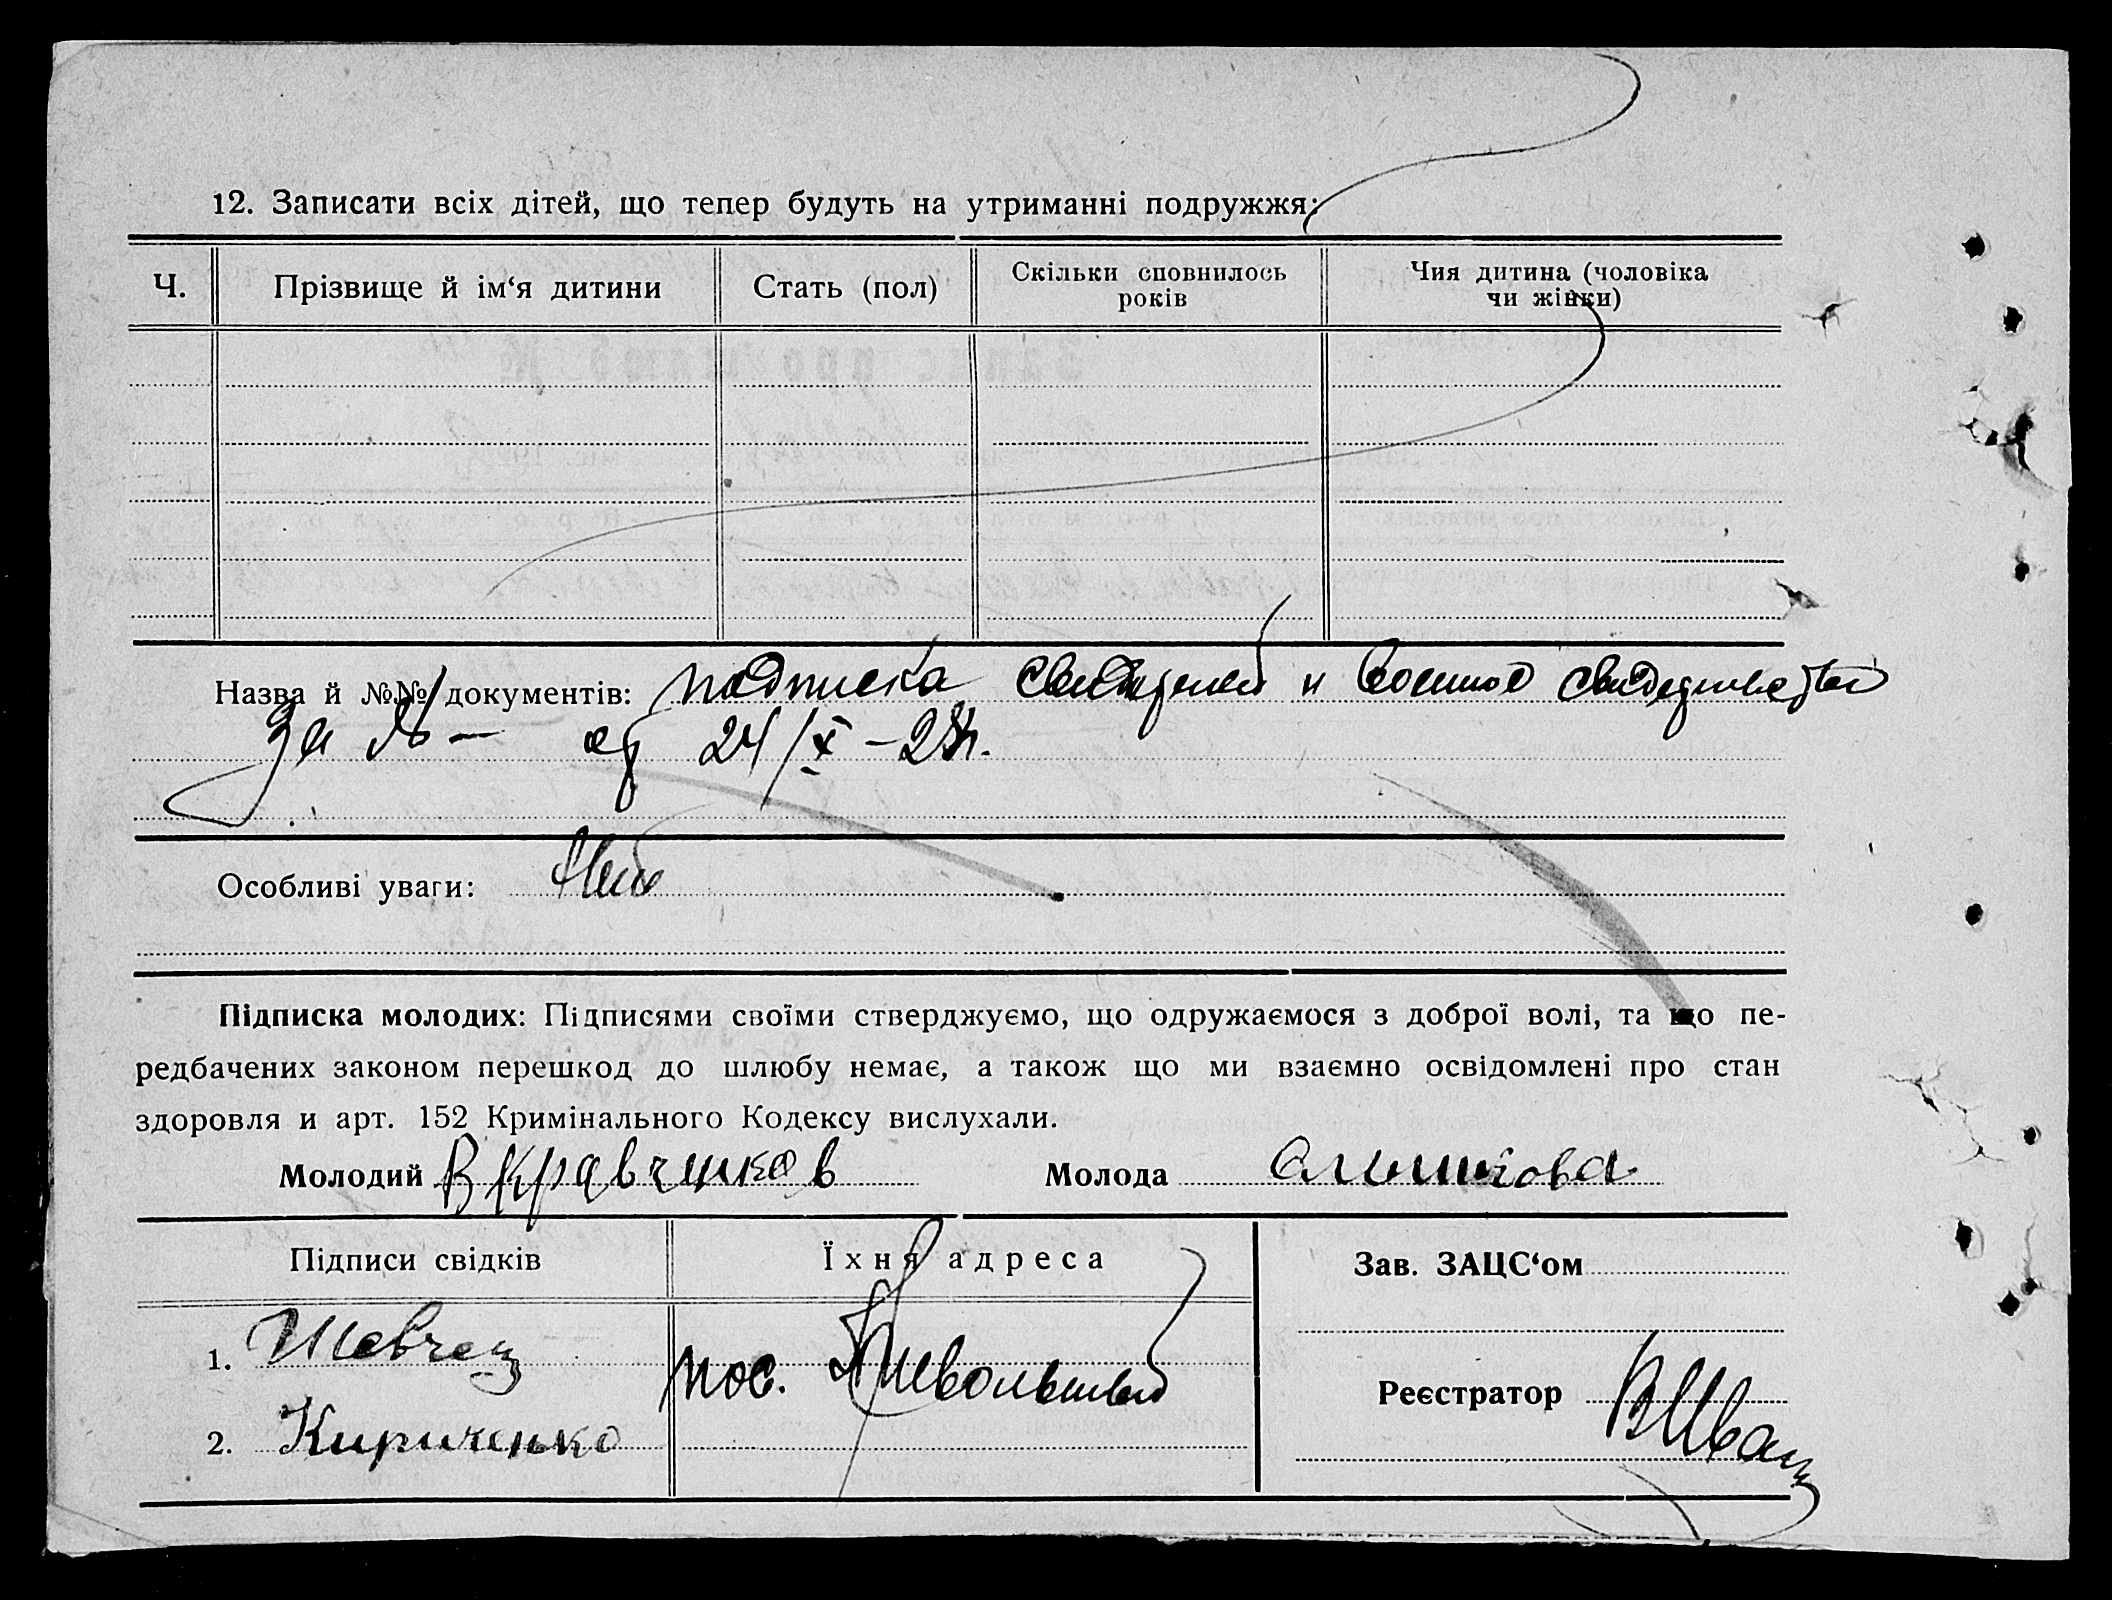 12. Записати всіх дітей, що тепер будуть на утриманні подружжя:
Ч. Прізвище й ім‘я дитини Стать (пол) Скільки сповнилось років Чия дитина (чоловіка чи жінки)
Назва й №№ документів: подписка свидетелей и военное свидетельство
За № — от 24/X – 28г.
Особливі уваги:
Підписка молодих: Підписями своїми стверджуємо, що одружаємося з доброї волі, та що пе-
редбачених законом перешкод до шлюбу немає, а також що ми взаємно освідомлені про стан
здоровля и арт. 152 Кримінального Кодексу вислухали.
Молодий В Кравченков Молода
Підписи свідків Їхня адреса Зав. ЗАЦС‘ом
1. Шевчец пос.
Реєстратор
2. Кириченко